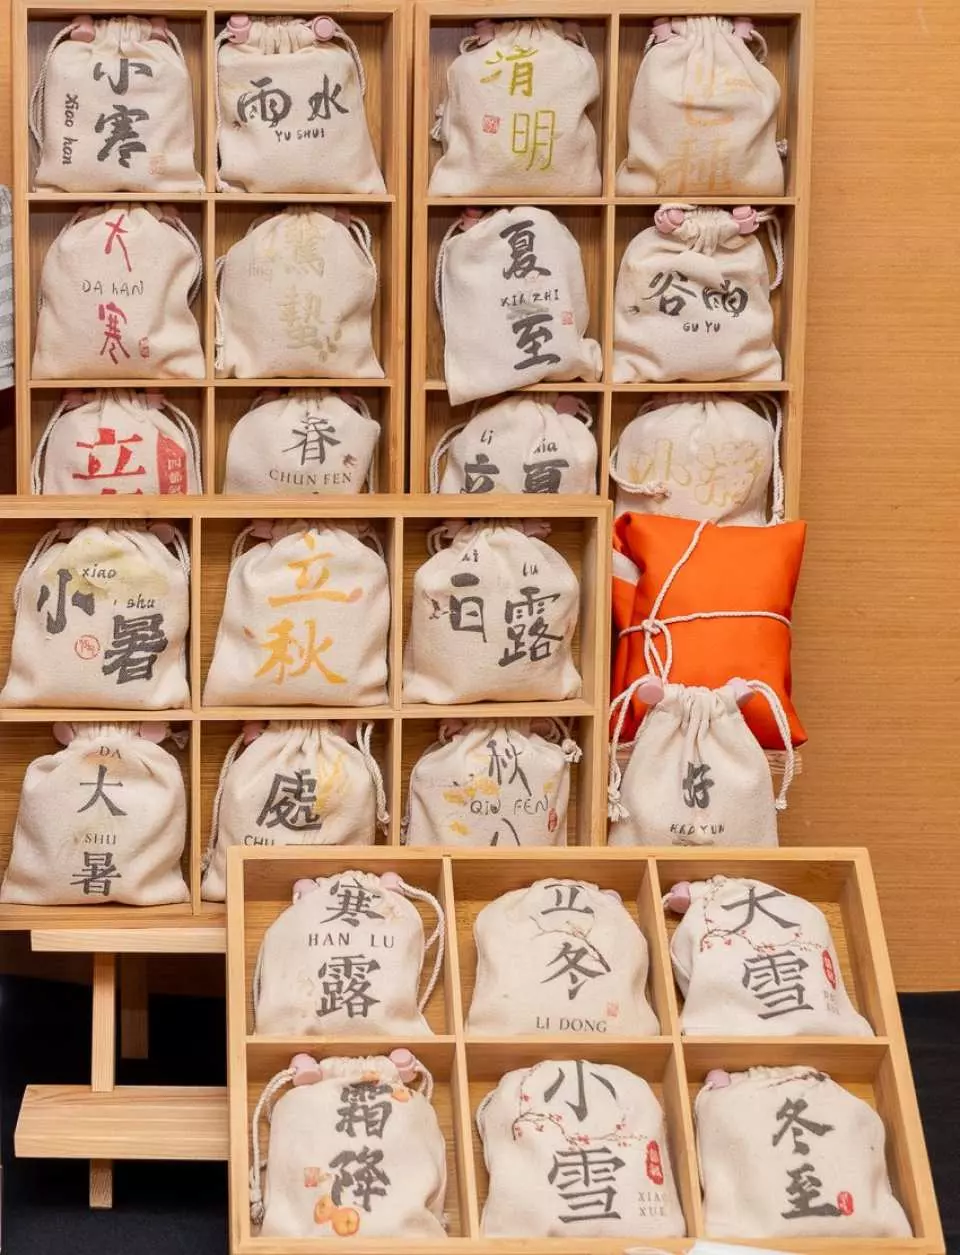 小寒
Xiao han
雨水
YU SHUI
大
DA HAN
寒
驚蟄
jing
立
春
CHUN FEN
清明
芒種
夏
XIA ZHI
至
谷雨
GU YU
li xia
立夏
小满
xiao
小
shu
暑
立秋
白露
lu
DA
大
SHU
暑
處
CHU
秋
QIU FEN
好
HAO YUN
寒
HAN LU
露
立冬
LI DONG
大雪
霜降
小雪
XIAO
XUE
冬至